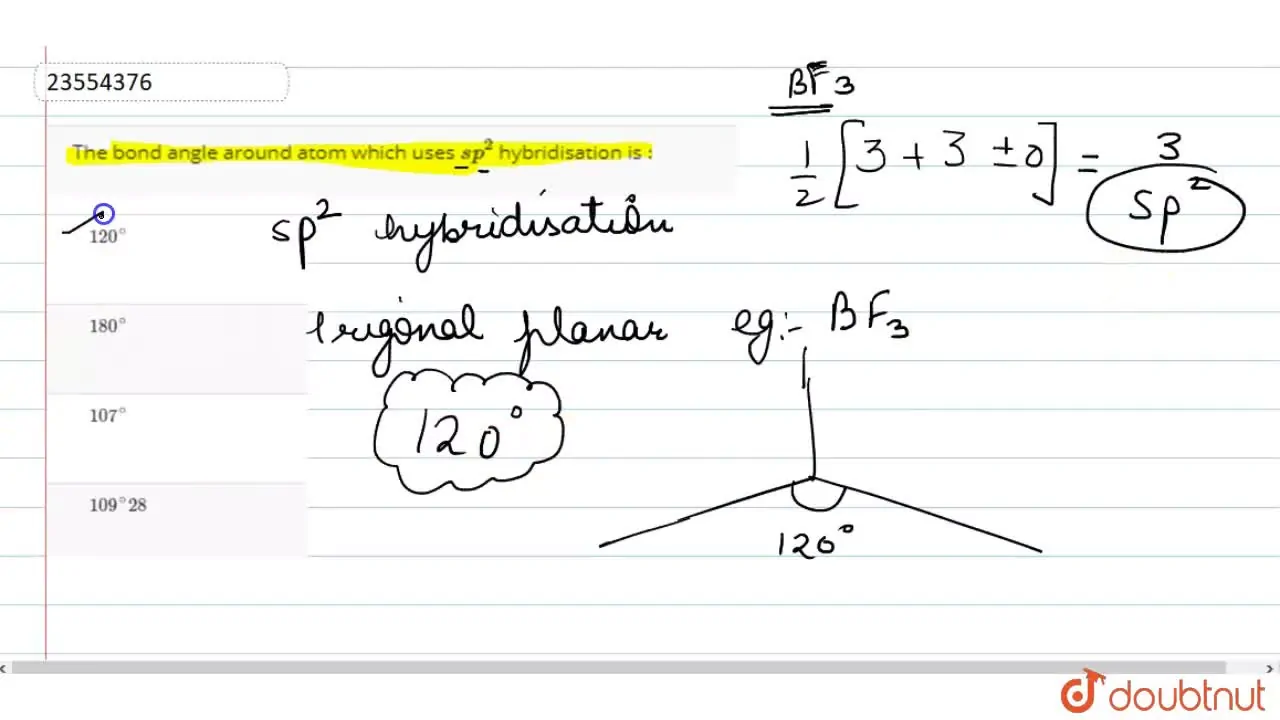 23554376
The bond angle around atom which uses sp² hybridisation is :
BF3
1/2 [3 + 3 ± 0] = 3
sp²
120°
sp² hybridisation
180°
trigonal planar eg:- BF3
107°
120°
109°28
120°
doubtnut